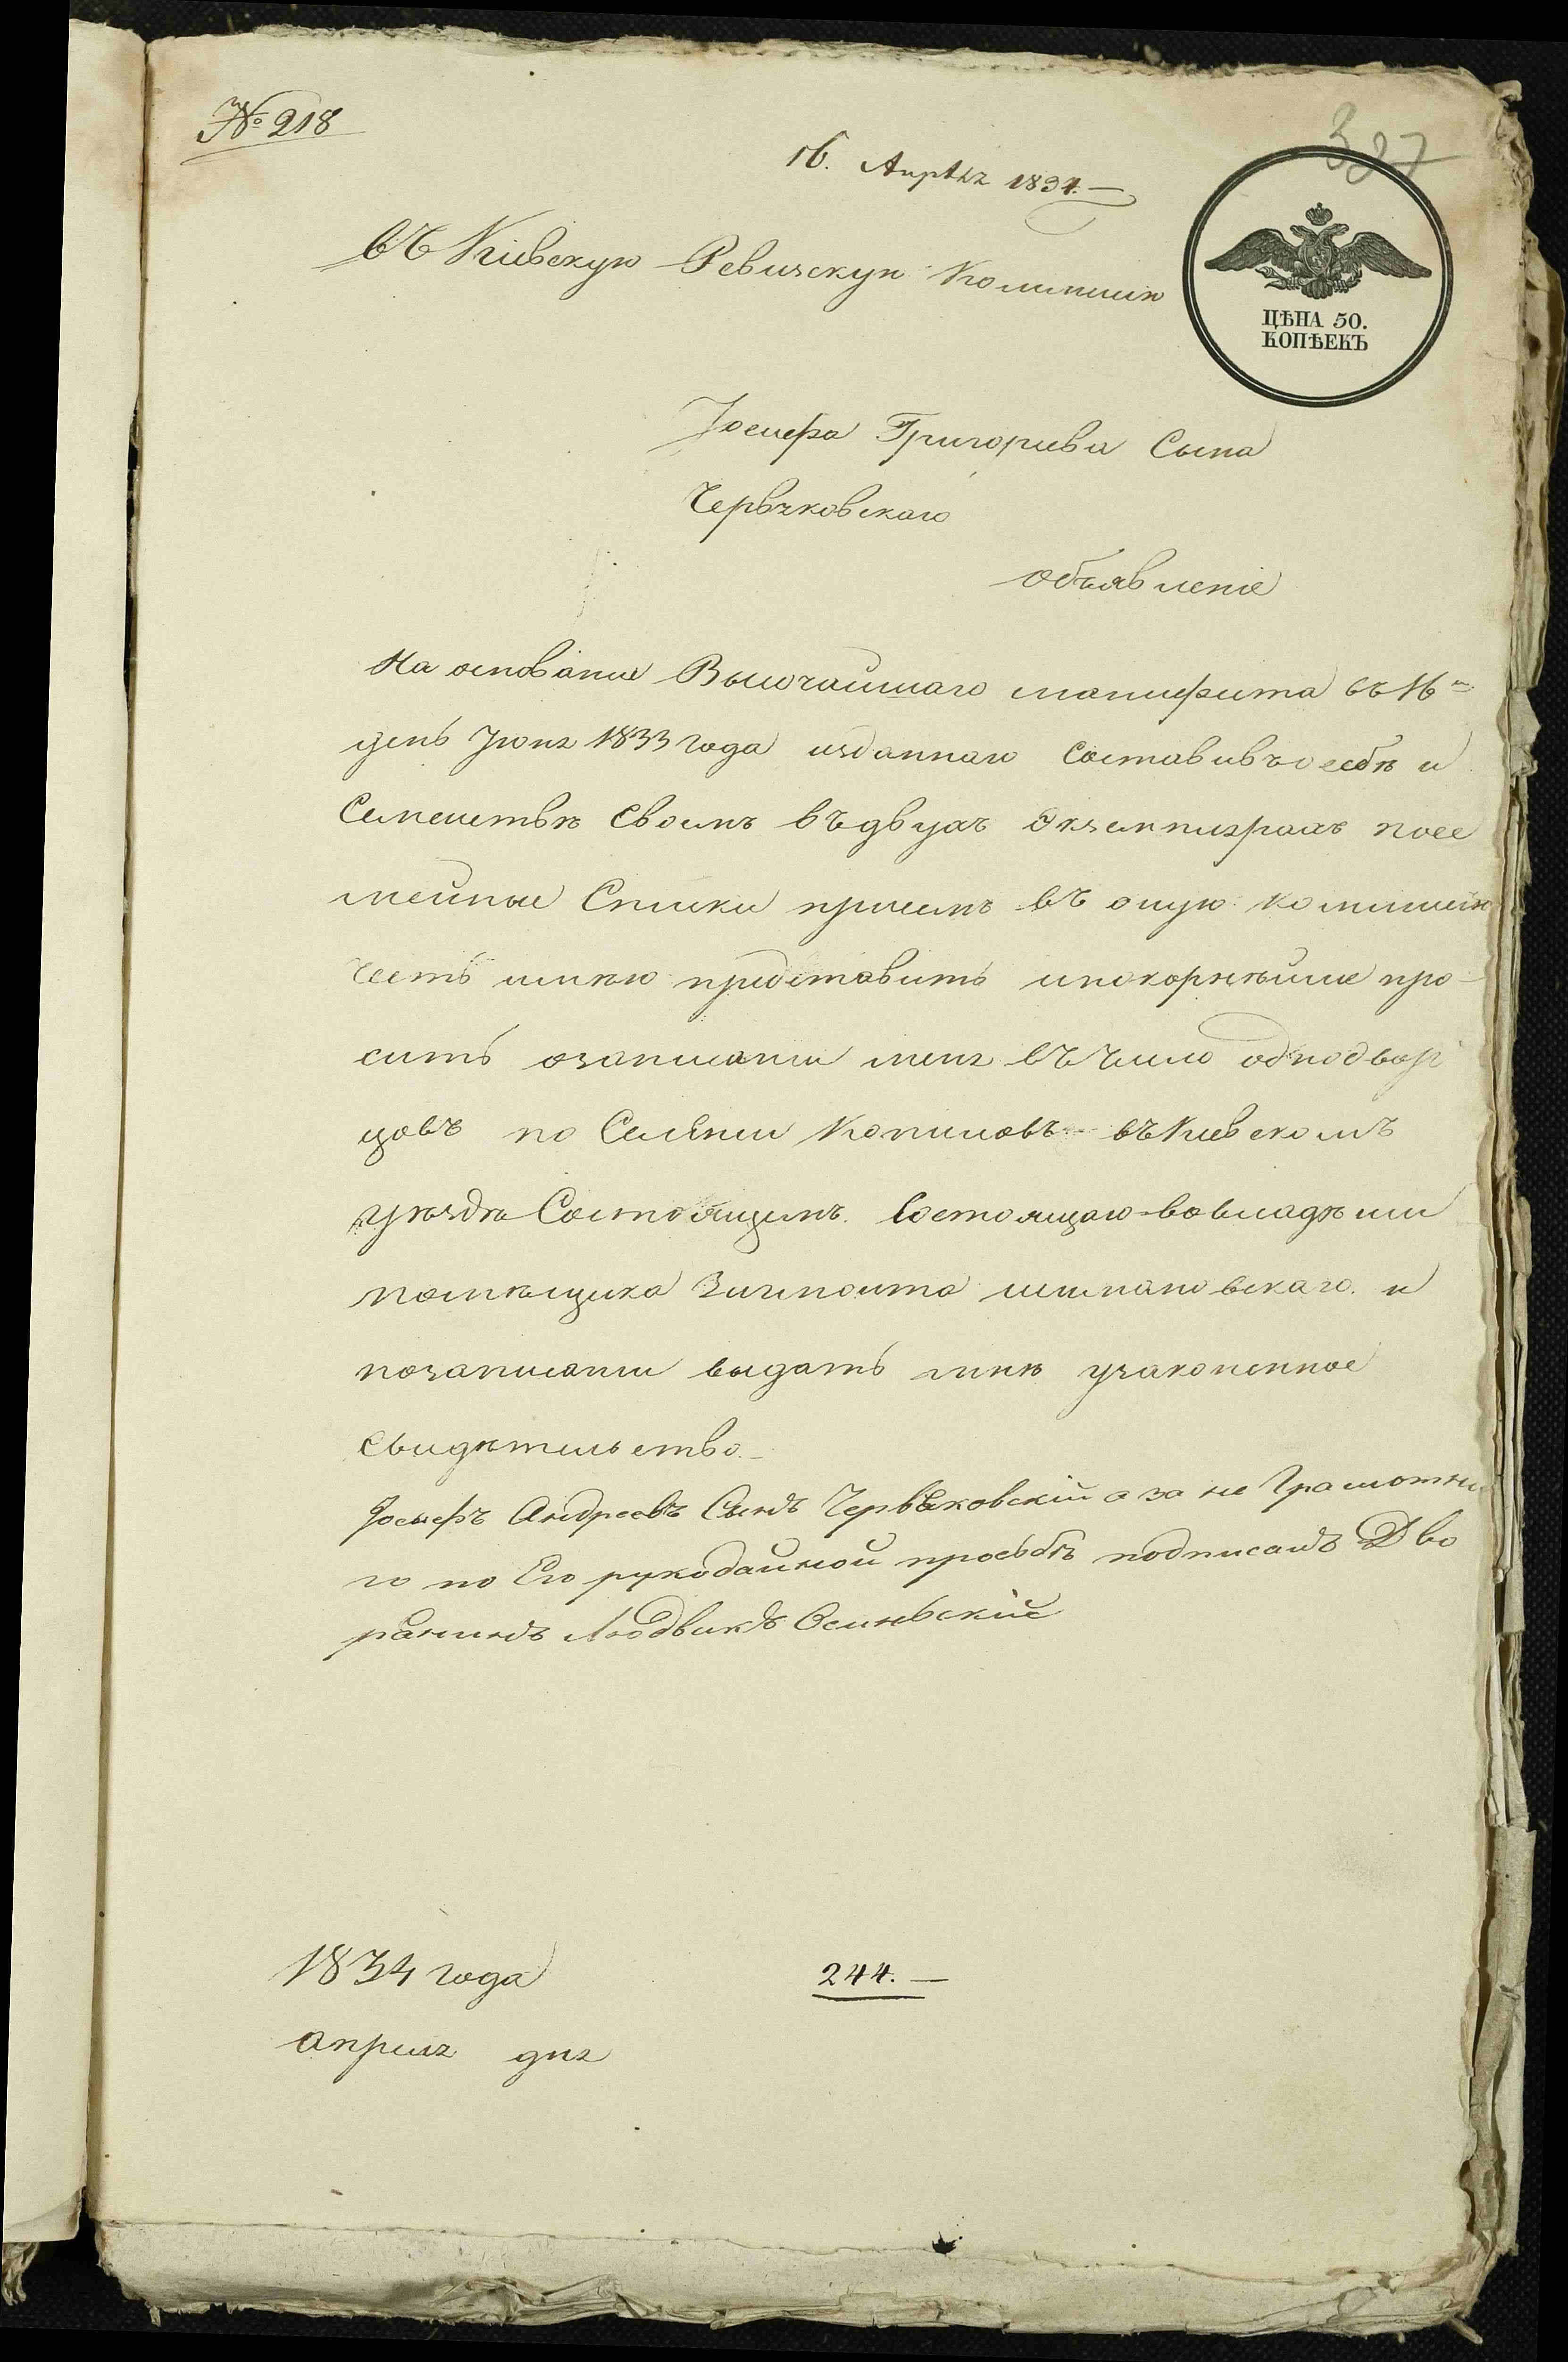 № 218
327
16. Апрѣля 1834.
ЦѢНА 50.
КОПѢЕКЪ
въ Кіевскую Ревизскую Коммисию
Іосифа Григориева Сына
Червяковскаго
объявленіе
На основание Высочайшаго манифеста въ 16
день Июня 1833 года изданнаго составивъ о себѣ и
Семействѣ своемъ въ двухъ Экземплярахъ посе
мейные Списки присемъ въ оную коммисию
честь имѣю представить ипокорнѣйше про-
сить озаписании меня въ число однодвор
цовъ по Селѣнии Копиловѣ въ Киевскомъ
уѣздѣ Состоящемъ. Состоящаго вовладѣнии
помѣщика Зигмонта шимановскаго. и
позаписании выдать мнѣ узаконенное
свидѣтельство.
Іосыфъ Андреевъ Сынъ Червяковскій а за не Грамотна
го по Его рукодайной просьбѣ подписалъ Дво
ранинъ Людвикъ Осиньскій
1834 года
244.
априля дня